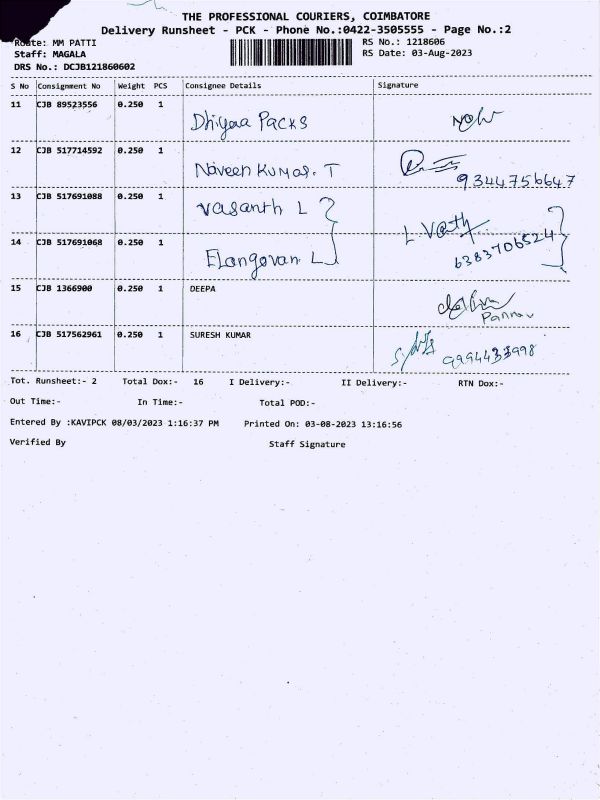 THE PROFESSIONAL COURIERS, COIMBATORE
Delivery Runsheet - PCK - Phone No.:0422-3505555 - Page No.:2
Route: MM PATTI RS No.: 1218606
Staff: MAGALA RS Date: 03-Aug-2023
DRS No.: DCJB121860602
S No Consignment No Weight PCS Consignee Details Signature
11 CJB 89523556 0.250 1 Dhiyaa Packs
12 CJB 517714592 0.250 1 Naveen Kumar. T 9344756647
13 CJB 517691088 0.250 1 Vasanth L
14 CJB 517691068 0.250 1 Elangovan L 6383706524
15 CJB 1366900 0.250 1 DEEPA
16 CJB 517562961 0.250 1 SURESH KUMAR 9994433998
Tot. Runsheet:- 2 Total Dox:- 16 I Delivery:- II Delivery:- RTN Dox:-
Out Time:- In Time:- Total POD:-
Entered By :KAVIPCK 08/03/2023 1:16:37 PM Printed On: 03-08-2023 13:16:56
Verified By Staff Signature